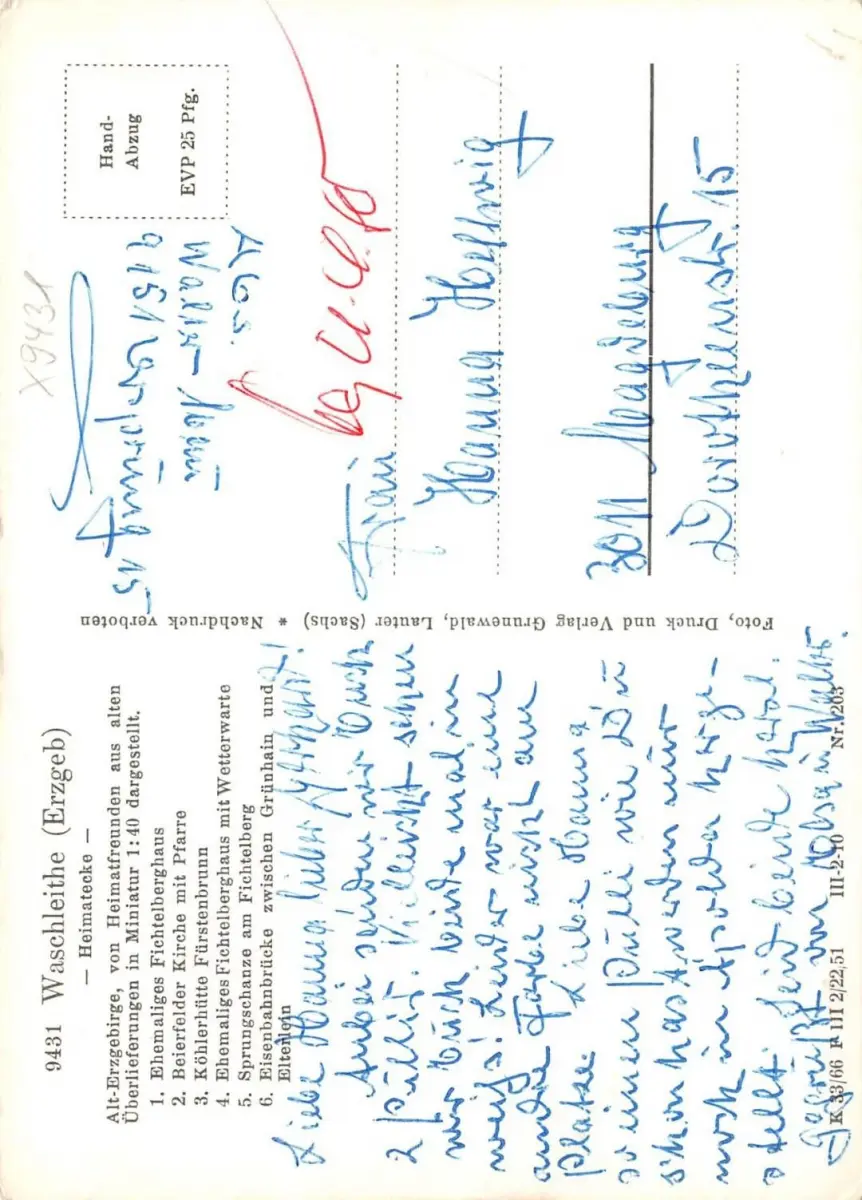 9431 Waschleithe (Erzgeb)
— Heimatecke —
Alt-Erzgebirge, von Heimatfreunden aus alten
Überlieferungen in Miniatur 1:40 dargestellt.
1. Ehemaliges Fichtelberghaus
2. Beierfelder Kirche mit Pfarre
3. Köhlerhütte Fürstenbrunn
4. Ehemaliges Fichtelberghaus mit Wetterwarte
5. Sprungschanze am Fichtelberg
6. Eisenbahnbrücke zwischen Grünhain und
Elterlein
Liebe Hanna lieber Gerhard!
Anbei senden wir Euch
2 Pulli. Vielleicht sehen
wir Euch beide mal in
weiß! Leider war eine
andre Farbe nicht am
Platze. Liebe Hanna
so einen Pulli wie Du
schon hast werden nur
noch in Apolda herge-
stellt. Seid beide herzl.
gegrüßt von Elsa u. Walter.
K 33/66 F III 2/22,51 III-2-10 Nr. 203
Foto, Druck und Verlag Grunewald, Lauter (Sachs) * Nachdruck verboten
X9431
Hand-
Abzug
EVP 25 Pfg.
Abs.
Walter
9151
15
Frau
Hanna
3011 Magdeburg
Dorotheenstr. 15